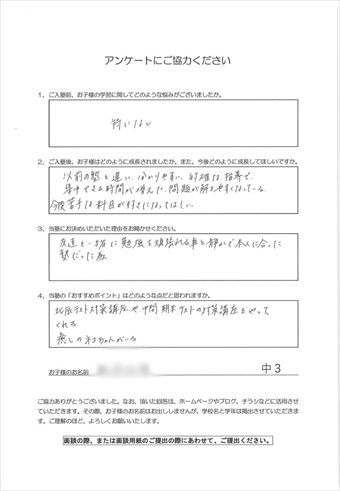 アンケートにご協力ください
1、ご入塾前、お子様の学習に関してどのような悩みがございましたか。
特になし
2、ご入塾後、お子様はどのように成長されましたか。また、今後どのように成長してほしいですか。
以前の塾と違い、分かりやすい、指導で、
集中できる時間が増えた。問題が解きやすくなっている。
今後苦手な科目が好きになってほしい。
3、当塾にお決めいただいた理由をお聞かせください。
友達と一緒に勉強を頑張れる事と静かで本人に合った
塾だった為
4、当塾の「おすすめポイント」はどのような点だと思われますか。
北辰テスト対策講座や中間期末テストの対策講座をやって
くれる
癒しのネコちゃんがいる
お子様のお名前
中3
ご協力ありがとうございました。なお、頂いた回答は、ホームページやブログ、チラシなどに活用させ
ていただきます。その際、お子様のお名前はお出ししませんが、学校名と学年は掲出させていただきま
す。ご理解のほど、よろしくお願いいたします。
面談の際、または面談用紙のご提出の際にあわせて、ご提出ください。